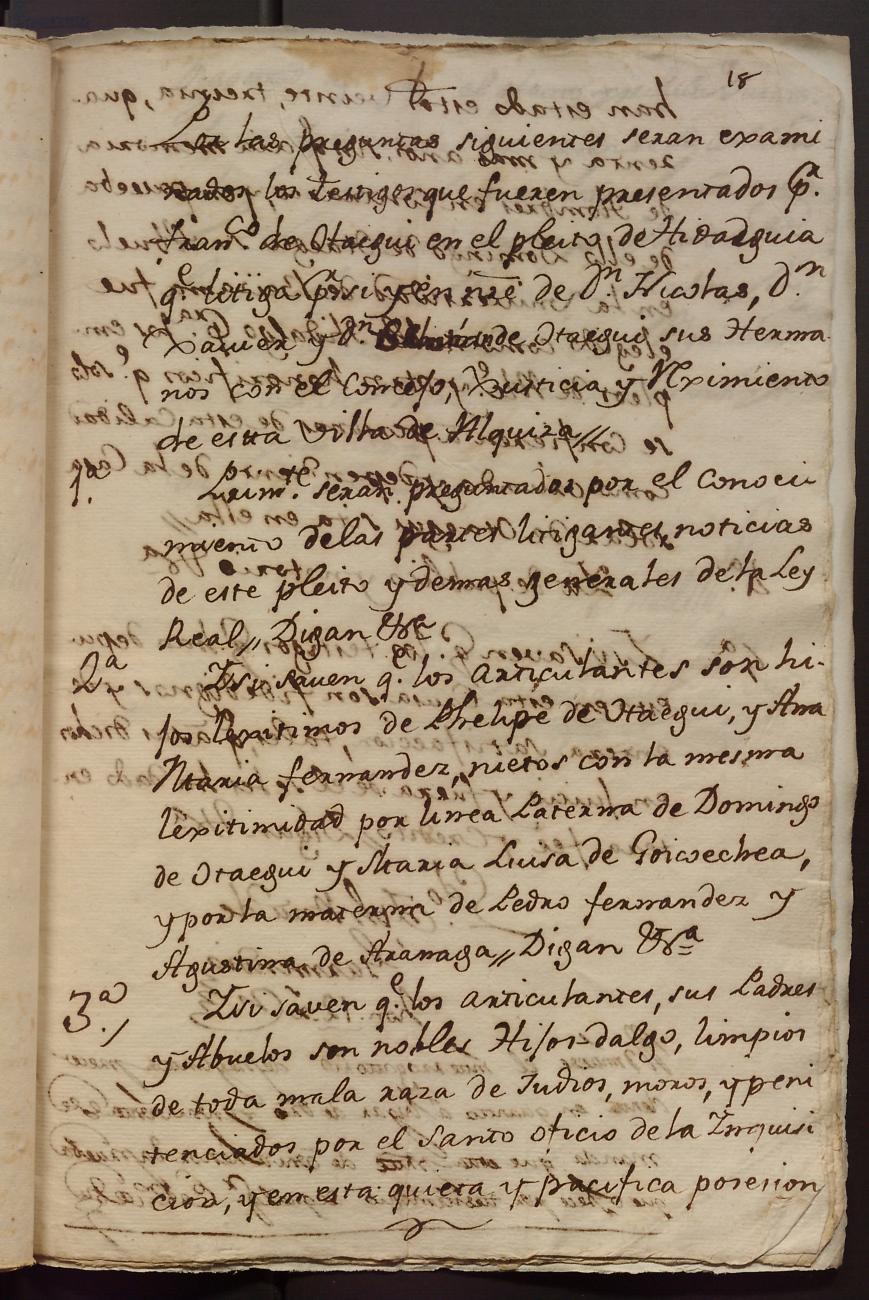 18
Por las preguntas siguientes seran exami
nados los testigos que fueren presentados Pr.
Franco. de Otaegui en el pleito, de Hidalguia
qe. litiga Pr. si y en nre de Dn. Nicolas, Dn
Xavier y Dn. de Otaegui sus Herma
nos con el Concejo, Justicia, y Rximiento
de esta Villa de Alquiza,,
1a. Primte. seran preguntados por el Conoci
miento de las partes litigantes, noticias
de este pleito y demas generales de la Ley
Real,, Digan &a
2a Y si saven qe. los articulantes son hi-
jos lexitimos de Phelipe de Otaegui, y Ana
Maria fernandez, nietos con la mesma
lexitimidad por linea Paterna de Domingo
de Otaegui y Maria Luisa de Goicoechea,
y por la materna de Pedro fernandez y
Agustina de Aranaga,, Digan &a
3a. Y si saven qe. los articulantes, sus Padres
y Abuelos son nobles Hijos-dalgo, limpios
de toda mala raza de Judios, moros, y peni
tenciados por el santo oficio de la Inquisi
cion, y en esta quieta y pacifica posesion